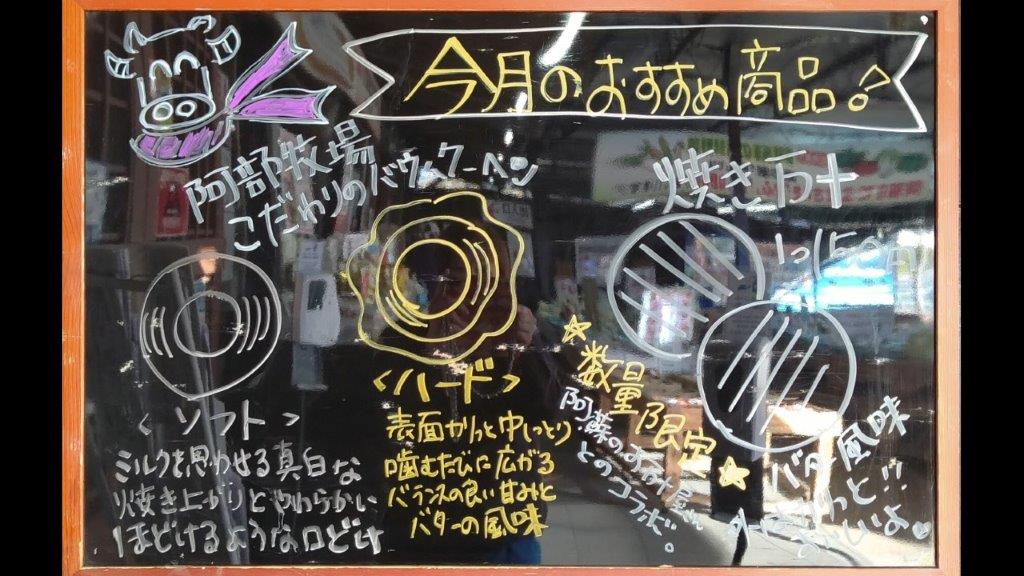 今月のおすすめ商品!
阿部牧場
こだわりのバウムクーヘン
<ソフト>
ミルクを思わせる真白な
焼き上がりとやわらかい
ほどけるような口どけ
<ハード>
表面かりっと中しっとり
噛むたびに広がる
バランスの良い甘みと
バターの風味
焼き万十
1つ150円
☆数量限定☆
阿蘇のお
とのコラボ。
バター風味
おいしいよ♡